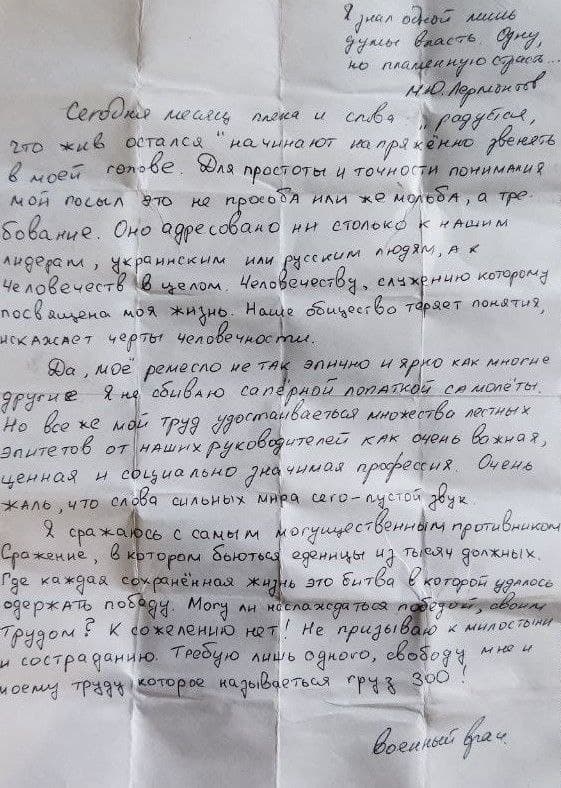 Я знал одной лишь
думы власть. Одну,
но пламенную страсть...
М.Ю. Лермонтов
Сегодня месяц плена и слова „радуйся,
что жив остался" начинают напряжённо звенеть
в моей голове. Для простоты и точности понимания
мой посыл это не прособа или же мольба, а тре-
бование. Оно адресовано ни столько к нашим
лидерам, украинским или русским людям, а к
человечеств в целом. Человечеству, служению которому
посвящена моя жизнь. Наше общество теряет понятия,
искажает черты человечности.
Да, моё ремесло не так эпично и ярко как многие
другие Я не сбиваю сапёрной лопаткой самолёты.
Но все же мой труд удостаиваеться множества лестных
эпитетов от наших руководителей как очень важная,
ценная и социально значимая профессия. Очень
жаль, что слова сильных мира сего-пустой звук.
Я сражаюсь с самым могущественным противником
Сражение, в котором бьються еденицы из тысяч должных.
Где каждая сохранённая жизнь это битва в которой удалось
одержать победу. Могу ли наслаждаться победой, своим
трудом? К сожелению нет! Не призываю к милостыни
и состраданию. Требую лишь одного, свободу мне и
моему труду которое называеться груз 300!
Военный врач.